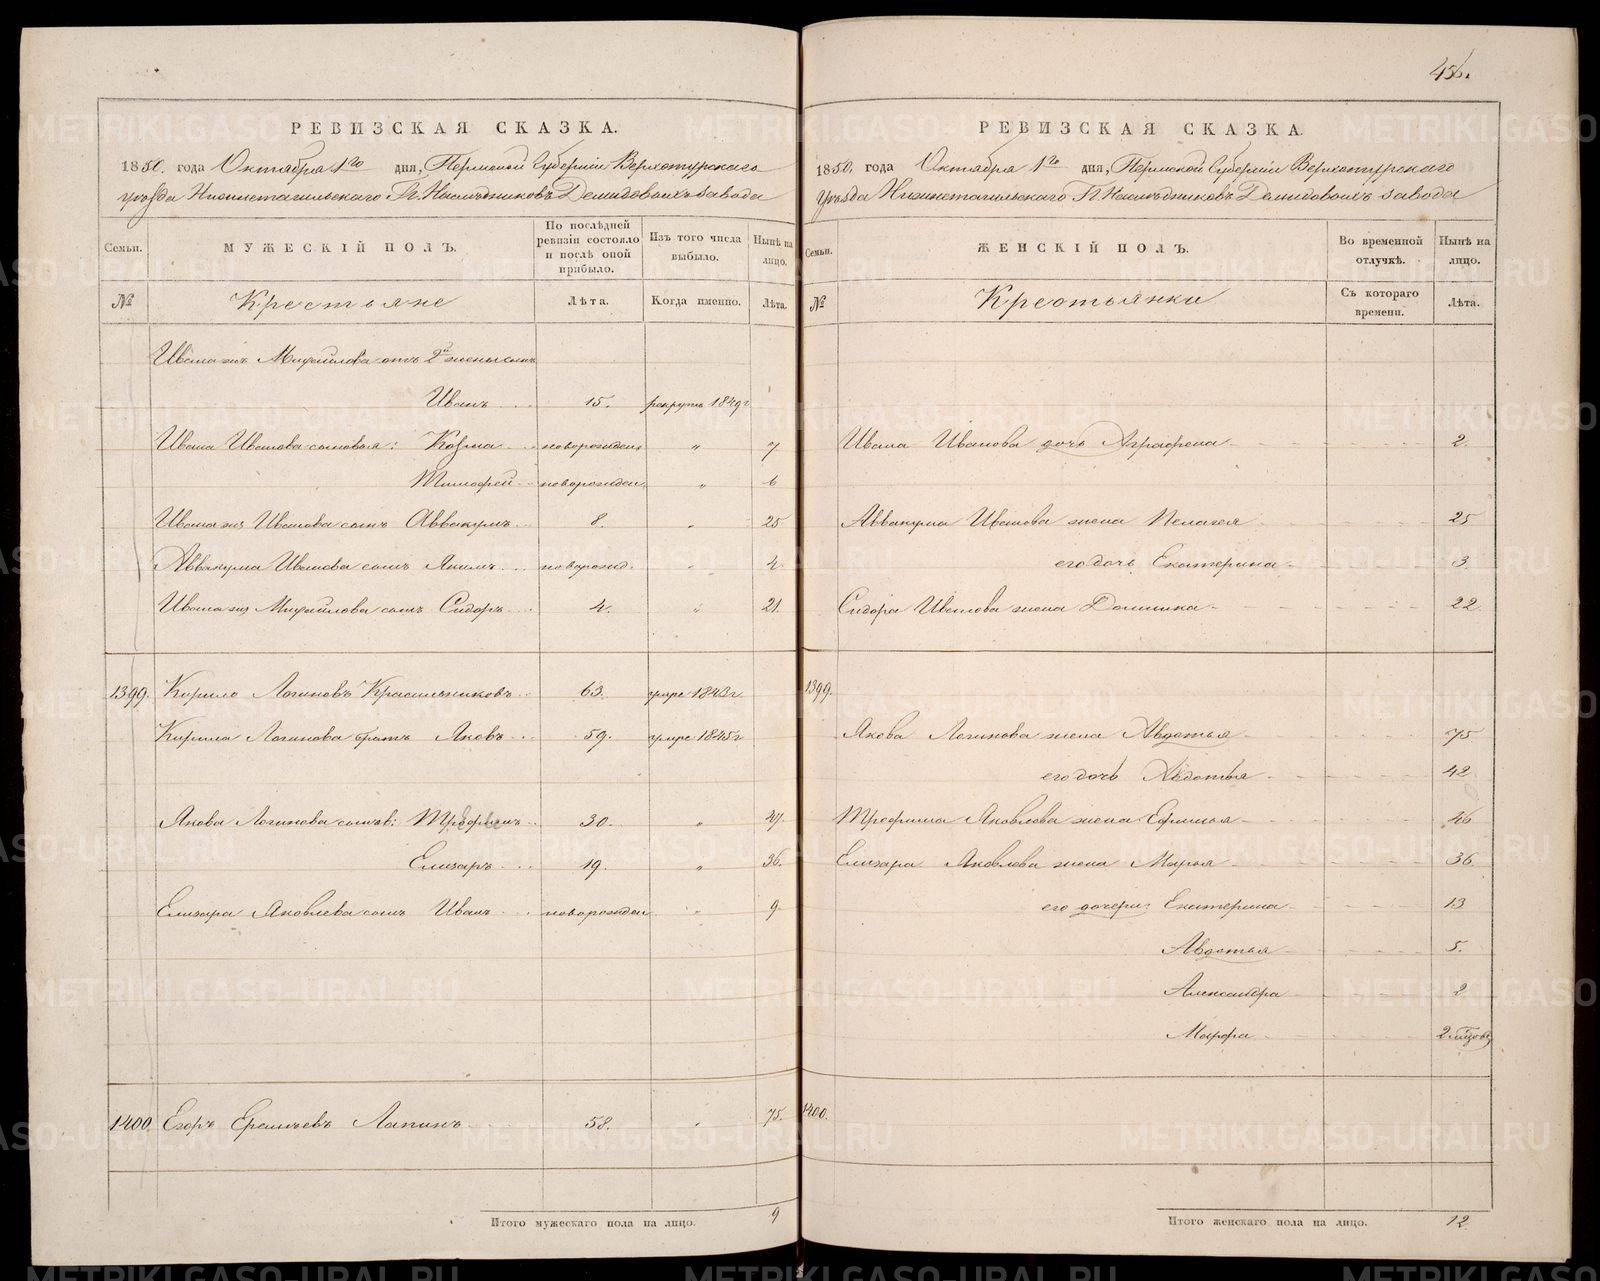 456.
РЕВИЗСКАЯ СКАЗКА.
1850. года Октября 1го дня, Пермской Губерніи Верхотурскаго
уѣзда Нижнетагильскаго Гг. Наслѣдниковъ Демидовыхъ завода
Семьи.
МУЖЕСКІЙ ПОЛЪ.
По послѣдней ревизіи состояло и послѣ оной прибыло.
Изъ того числа выбыло.
Нынѣ на лицо.
№
Крестьяне
Лѣта.
Когда именно.
Лѣта.
Ивана Михайлова отъ 2й жены сынъ
Иванъ 15. рекрутъ 1849г
Ивана Иванова сыновья: Козма новорожден „ 7
Тимофей новорожден. „ 6
Иванова сынъ Аввакумъ 8. „ 25
Аввакума Иванова сынъ Якимъ новорожд. „ 4
Михайлова сынъ Сидоръ 4. „ 21.
1399. Кирило Логиновъ Красильниковъ 63. умре 1843г
Кирила Логинова братъ Яковъ 59. умре 1845г
Якова Логинова сынов: Трефилъ 30. „ 47
Елизаръ 19. „ 36.
Елизара Яковлева сынъ Иванъ новорожден „ 9
1400. Егоръ Лапинъ 58. „ 75.
Итого мужескаго пола на лицо. 9
РЕВИЗСКАЯ СКАЗКА
1850. года Октября 1го дня, Пермской Губерніи Верхотурскаго
уѣзда Нижнетагильскаго Гг. Наслѣдниковъ Демидовыхъ завода
Семьи.
ЖЕНСКІЙ ПОЛЪ.
Во временной отлучкѣ.
Нынѣ на лицо.
№
Крестьянки
Съ котораго времени.
Лѣта.
Ивана Иванова дочь Аграфена 2.
Аввакума Иванова жена Пелагея 25
его дочь Екатерина 3.
Сидора Иванова жена Домника 22
1399.
Якова Логинова жена Авдотья 75
его дочь Авдотья 42
Трефила Яковлева жена 46
Елизара Яковлева жена Марья 36
его дочери: Екатерина 13
Авдотья 5.
Александра 2
Марфа
1400.
Итого женскаго пола на лицо. 12
METRIKI.GASO-URAL.RU